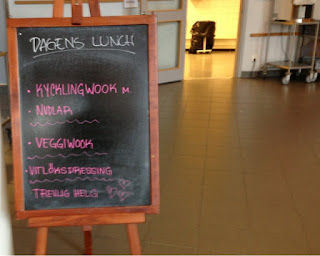 DAGENS LUNCH
• KYCKLINGWOOK M.
• NUDLAR
• VEGGIWOOK
• VITLÖKSDRESSING
TREVLIG HELG